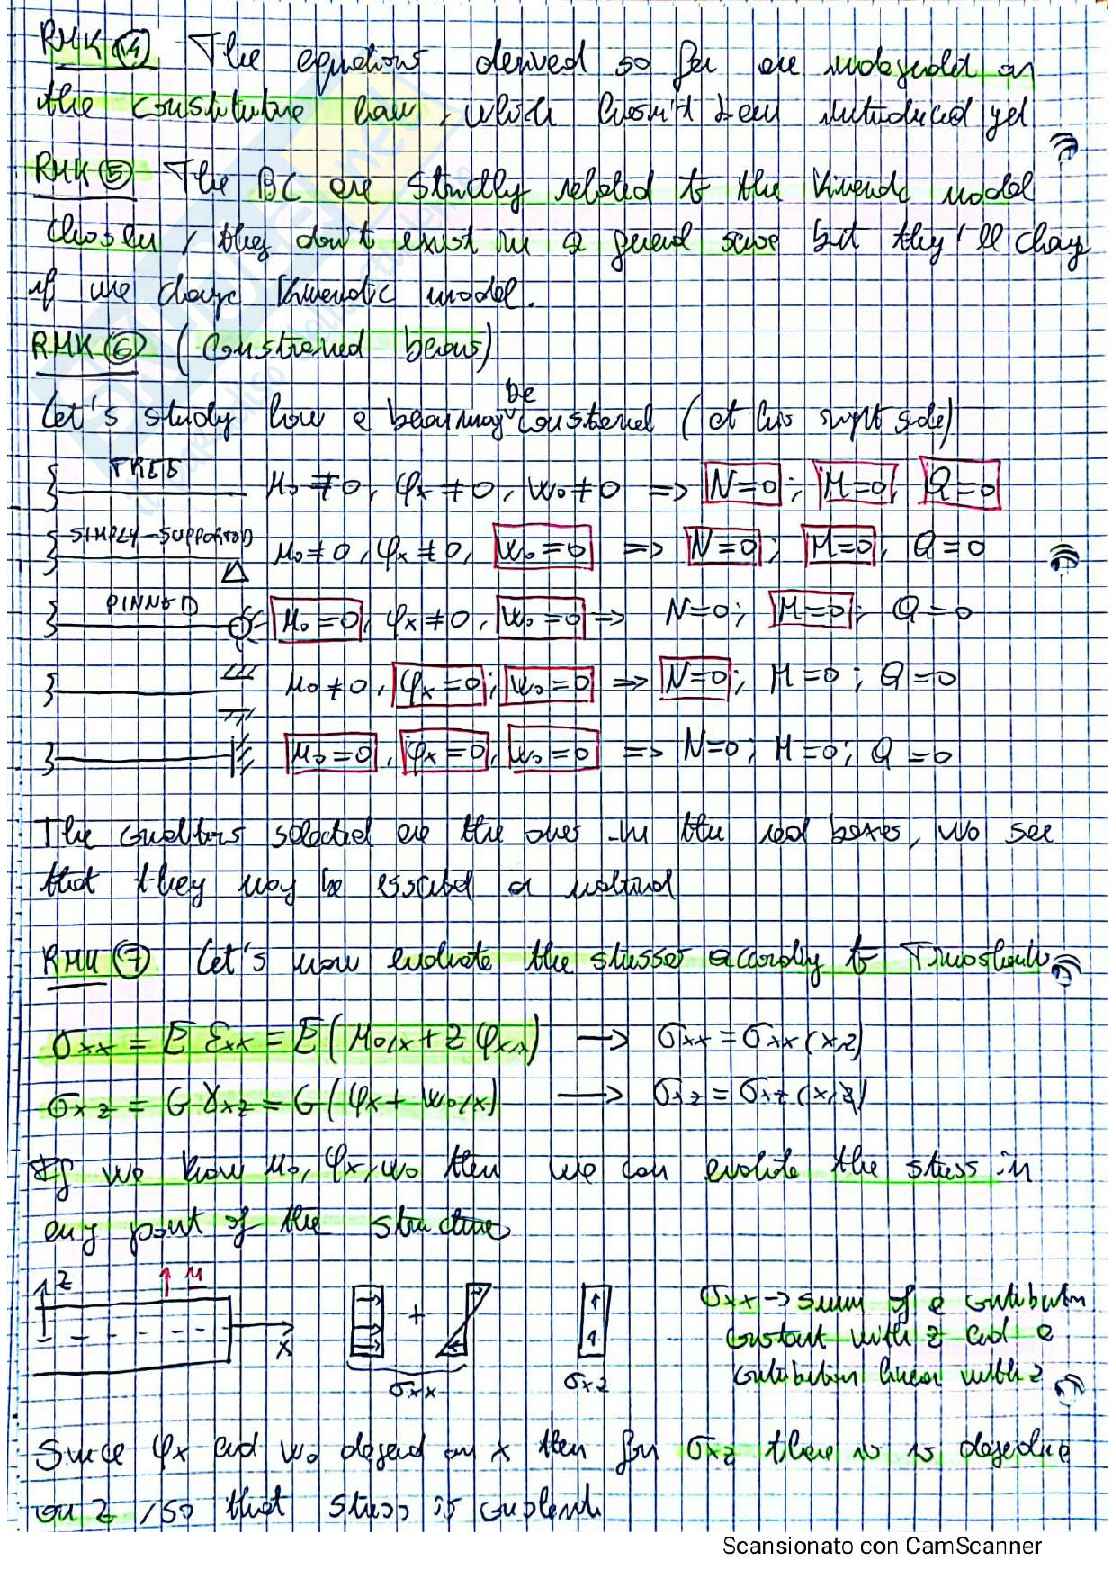 RMK ④ The equations derived so far are independent on
the constitutive law, which hasn't been introduced yet
RMK ⑤ The BC are strictly related to the kinematic model
chosen, they don't exist in a general sense but they'll change
if we change kinematic model.
RMK ⑥ (constrained beams)
Let's study how a beam may be constrained (at his right side)
FREE u₀ ≠ 0, φx ≠ 0, w₀ ≠ 0 => N=0; M=0, Q=0
SIMPLY-SUPPORTED u₀ ≠ 0, φx ≠ 0, w₀=0 => N=0; M=0, Q=0
PINNED u₀=0, φx ≠ 0, w₀=0 => N=0; M=0; Q=0
u₀ ≠ 0, φx=0; w₀=0 => N=0; M=0; Q=0
u₀=0, φx=0, w₀=0 => N=0; M=0; Q=0
The conditions selected are the ones in the red boxes, we see
that they may be essential or natural
RMK ⑦ Let's now evaluate the stresses according to Timoshenko
σxx = E εxx = E(u₀/x + z φx,x) → σxx = σxx(x,z)
σxz = G γxz = G(φx + w₀/x) → σxz = σxz(x,z)
If we know u₀, φx, w₀ then we can evaluate the stress in
any point of the structure
z u x + σxx σxz
σxx → sum of a contribution
constant with z and a
contribution linear with z
Since φx and w₀ depend on x then for σxz there is no dependence
on z, so that stress is constant.
Scansionato con CamScanner